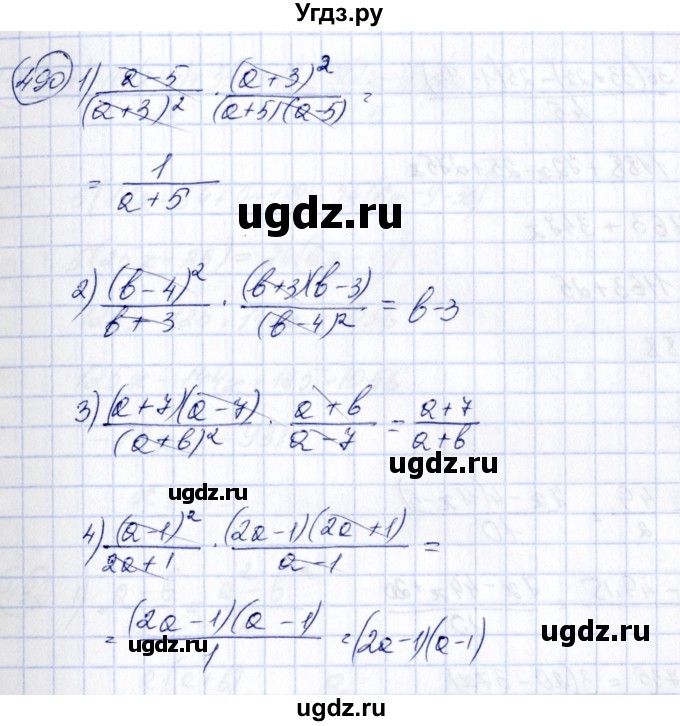 Угдз.ру
490 1) (a-5)/(a+3)² · (a+3)²/((a+5)(a-5)) =
= 1/(a+5)
ugdz.ru
ugdz.ru
2) (b-4)²/(b+3) · ((b+3)(b-3))/(b-4)² = b-3
3) ((a+7)(a-7))/(a+b)² · (a+b)/(a-7) = (a+7)/(a+b)
ugdz.ru
ugdz.ru
4) (a-1)²/(2a+1) · ((2a-1)(2a+1))/(a-1) =
= ((2a-1)(a-1))/1 = (2a-1)(a-1)
ugdz.ru
ugdz.ru
ugdz.ru